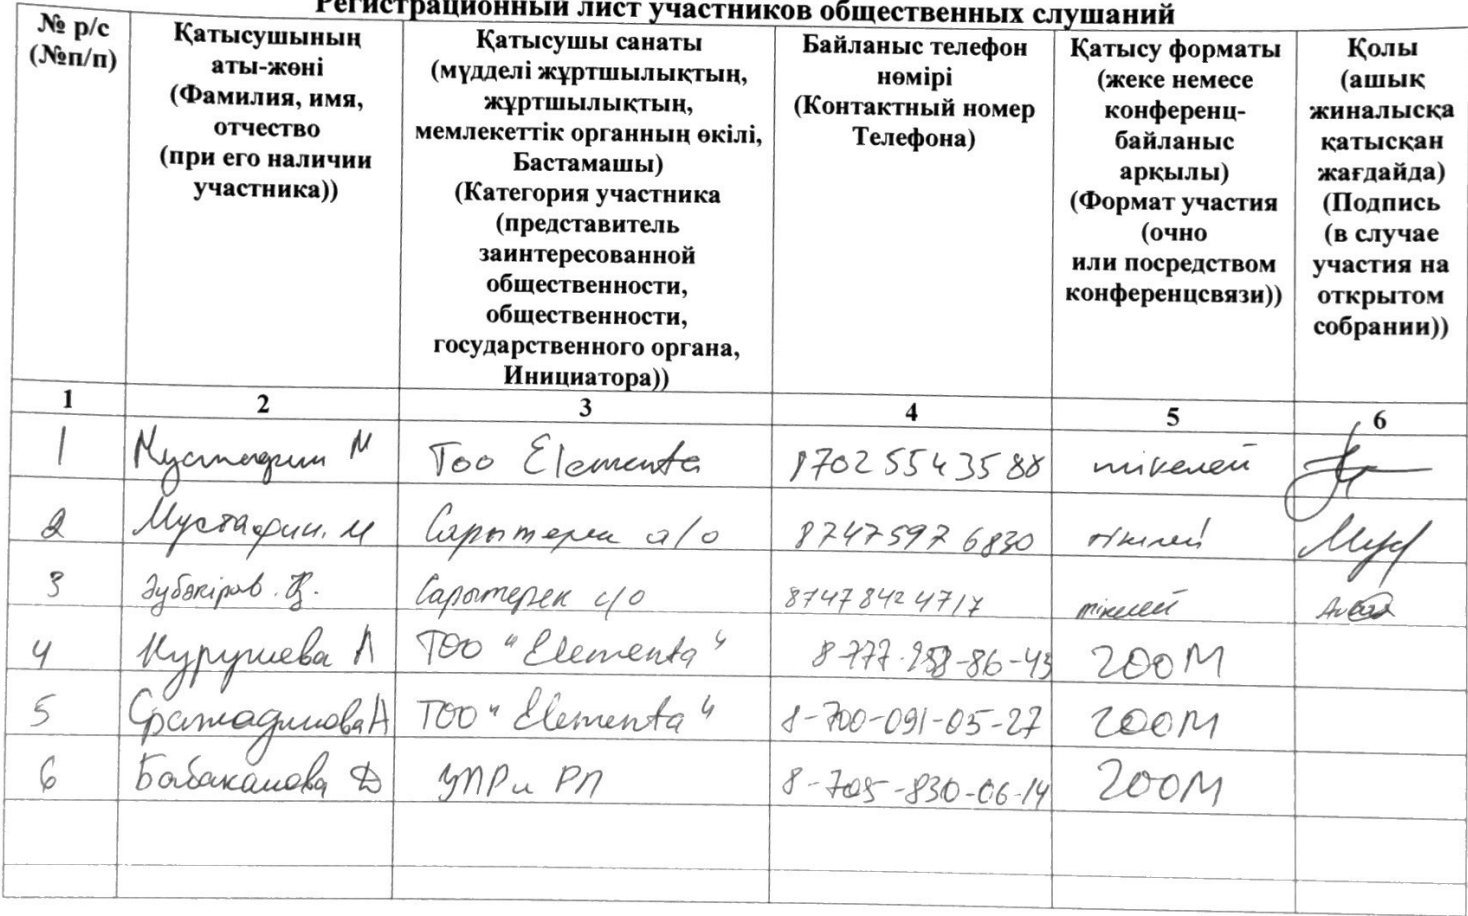 Регистрационный лист участников общественных слушаний
№ р/с
(№п/п)
Қатысушының
аты-жөні
(Фамилия, имя,
отчество
(при его наличии
участника))
Қатысушы санаты
(мүдделі жұртшылықтың,
жұртшылықтың,
мемлекеттік органның өкілі,
Бастамашы)
(Категория участника
(представитель
заинтересованной
общественности,
общественности,
государственного органа,
Инициатора))
Байланыс телефон
нөмірі
(Контактный номер
Телефона)
Қатысу форматы
(жеке немесе
конференц-
байланыс
арқылы)
(Формат участия
(очно
или посредством
конференцсвязи))
Қолы
(ашық
жиналысқа
қатысқан
жағдайда)
(Подпись
(в случае
участия на
открытом
собрании))
1 2 3 4 5 6
1 Мустафин М Тоо Elementa 87025543588 тікелей
2 Мустафин. М Сарытерек а/о 87475976830 тікелей
3 Әубәкіров. Сарытерек с/о 87478424717 тікелей
4 Курушева А ТОО "Elementa" 8-777-258-86-43 ZOOM
5 А ТОО "Elementa" 8-700-091-05-27 ZOOM
6 Бабаканова Д УПР и РП 8-705-830-06-14 ZOOM